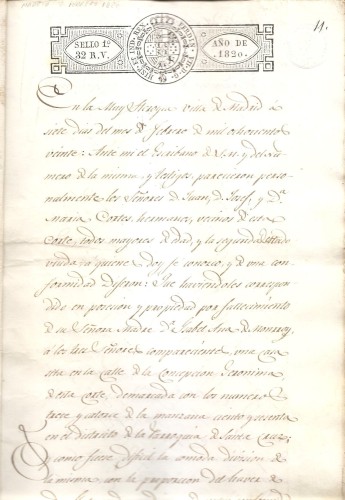 11.
SELLO 1º
32 R.V.
AÑO DE
1820.
En la Muy Heroyca villa de Madrid á
siete dias del mes de febrero de mil ochocientos
veinte: Ante mi el Escribano de S.M. y del nu-
mero de la misma, y testigos, parecieron perso-
nalmente los Señores D. Juan, D. Josef, y Dª
Maria Cortes, hermanos, vecinos de esta
Corte, todos mayores de edad, y la segunda
viuda, á quienes doy fe conozco, y de una con-
formidad Dijeron: Que haviendoles correspon-
dido en posesion y propiedad por fallecimiento
de su Señora Madre Dª Isabel de
á los tres Señores comparecientes, una ca-
sa en la calle de la Concepcion Geronima
de esta Corte, demarcada con los numeros
trece y catorce de la manzana ciento y sesenta
en el distrito de la Parroquia de Santa Cruz:
y como fuese dificil la comoda division de
la misma, con la proporcion del haver de